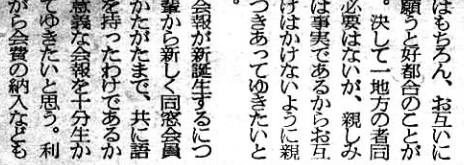 はもちろん、お互いに
願うと好都合のことが
。決して一地方の者同
必要はないが、親しみ
は事実であるからお互
けはかけないように親
つきあってゆきたいと
会報が新誕生するにつ
輩から新しく同窓会員
かたがたまで、共に語
を持ったわけであるか
意義な会報を十分生か
てゆきたいと思う。利
がら会費の納入なども